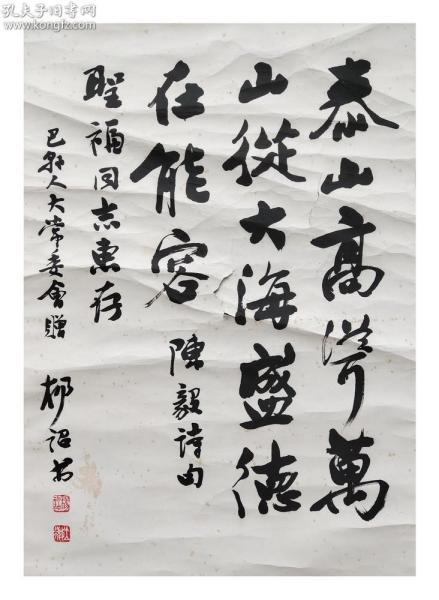 孔夫子旧书网
www.kongfz.com
泰山高聳萬
山從大海盛德
在能容 陳毅詩句
聖福同志惠存
巴縣人大常委會贈